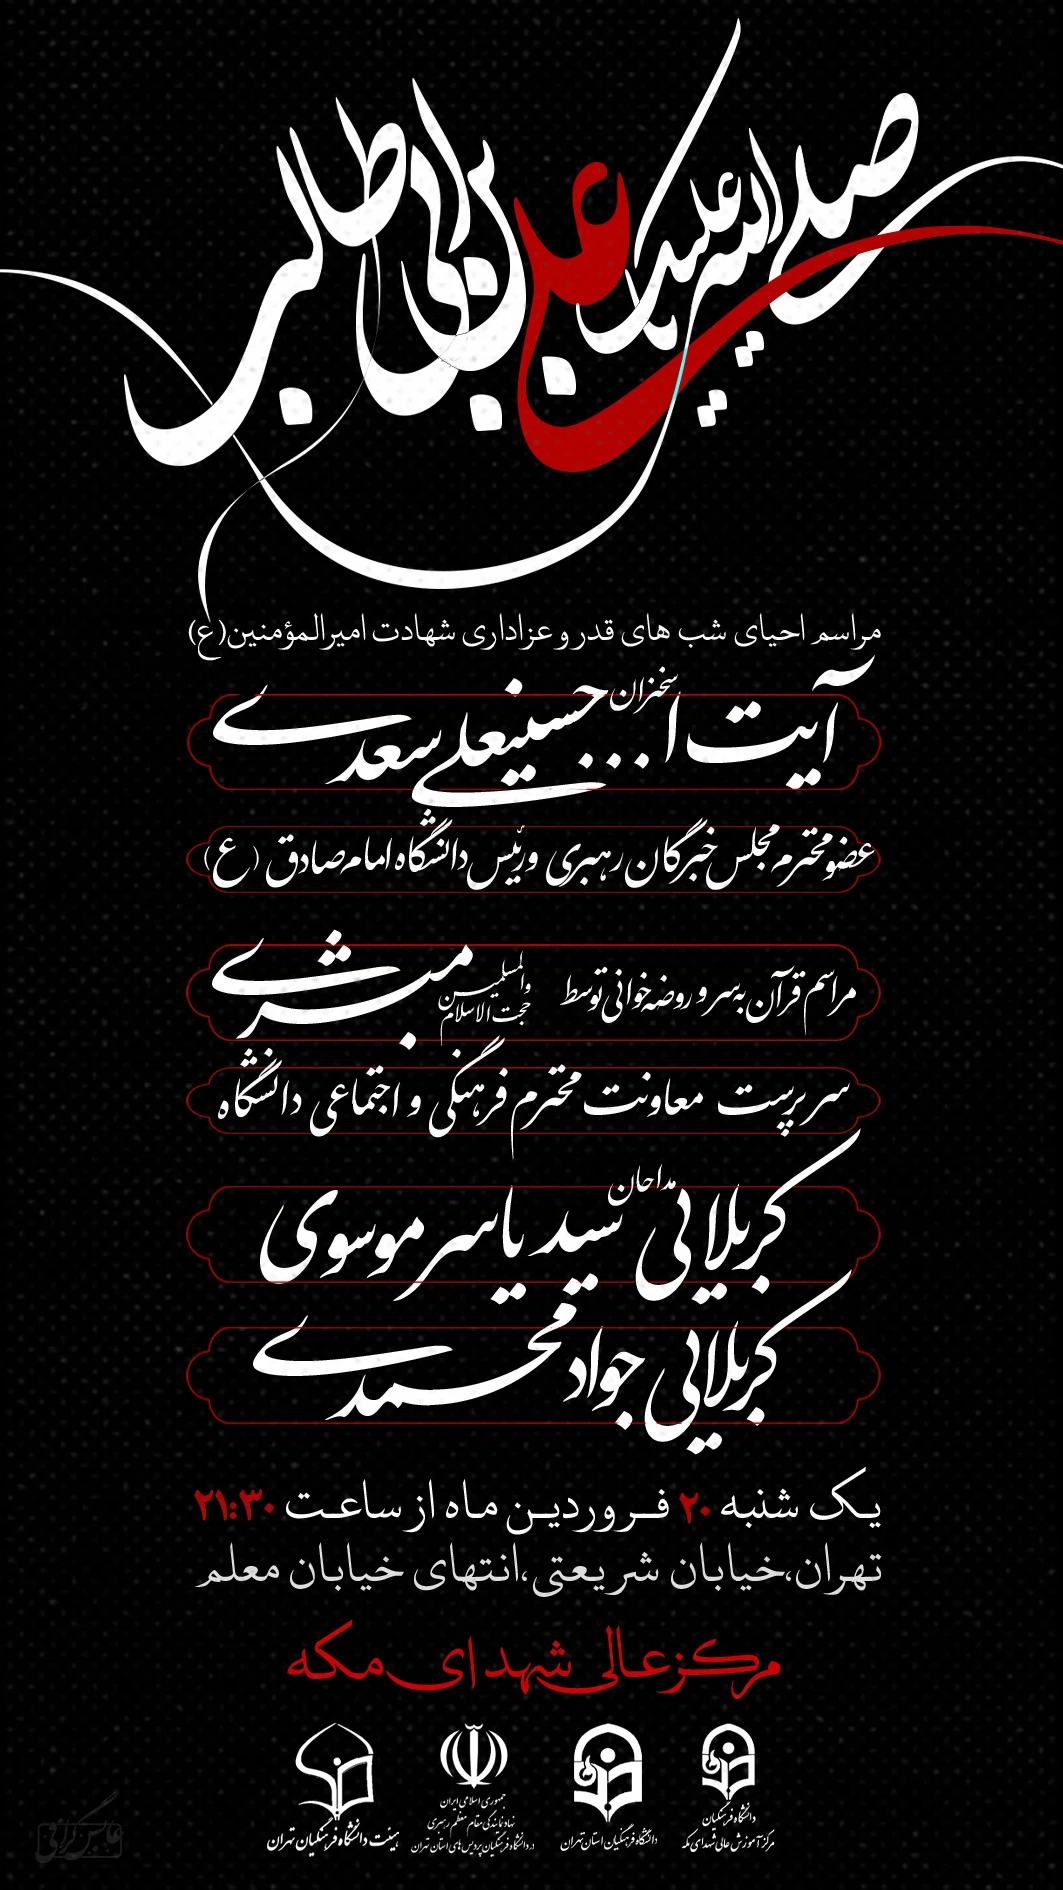 صلی الله علیک یا علی بن ابی طالب
مراسم احیای شب های قدر و عزاداری شهادت امیرالمؤمنین(ع)
سخنران
آیت ا... حسینعلی سعدی
عضو محترم مجلس خبرگان رهبری ورئیس دانشگاه امام صادق (ع)
مراسم قرآن به سر و روضه خوانی توسط حجت الاسلام والمسلمین مبشری
سرپرست معاونت محترم فرهنگی و اجتماعی دانشگاه
مداحان
کربلایی سید یاسر موسوی
کربلایی جواد محمدی
یک شنبه ۲۰ فروردین ماه از ساعت ۲۱:۳۰
تهران،خیابان شریعتی،انتهای خیابان معلم
مرکز عالی شهدای مکه
دانشگاه فرهنگیان
مرکز آموزش عالی شهدای مکه
دانشگاه فرهنگیان استان تهران
جمهوری اسلامی ایران
نهاد نمایندگی مقام معظم رهبری
در دانشگاه فرهنگیان پردیس های استان تهران
هیئت دانشگاه فرهنگیان تهران